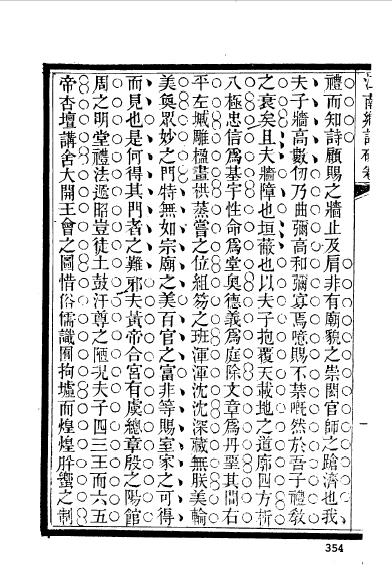 禮而知詩顧賜之牆止及肩非有廟貌之崇閎官師之蹌濟也我
夫子牆高數仞乃曲彌高和彌寡焉噫賜不禁嘅然於吾子禮教
之衰矣且夫牆障也垣蔽也以夫子抱覆天載地之道廓四方拆
八極忠信為基宇性命為堂奧德義為庭除文章為丹雘其間右
平左墄雕楹畫栱蒸嘗之位組笏之班渾渾沈沈深藏無朕美輪
美奐眾妙之門特無如宗廟之美百官之富非等賜室家之可得
而見也是何得其門者之難邪夫黃帝合宮有虞總章殷之陽館
周之明堂禮法遞昭豈徒土鼓汙尊之陋況夫子四三王而六五
帝杏壇講舍大開王會之圖惜俗儒識囿拘墟而煌煌肸蠁之制
354